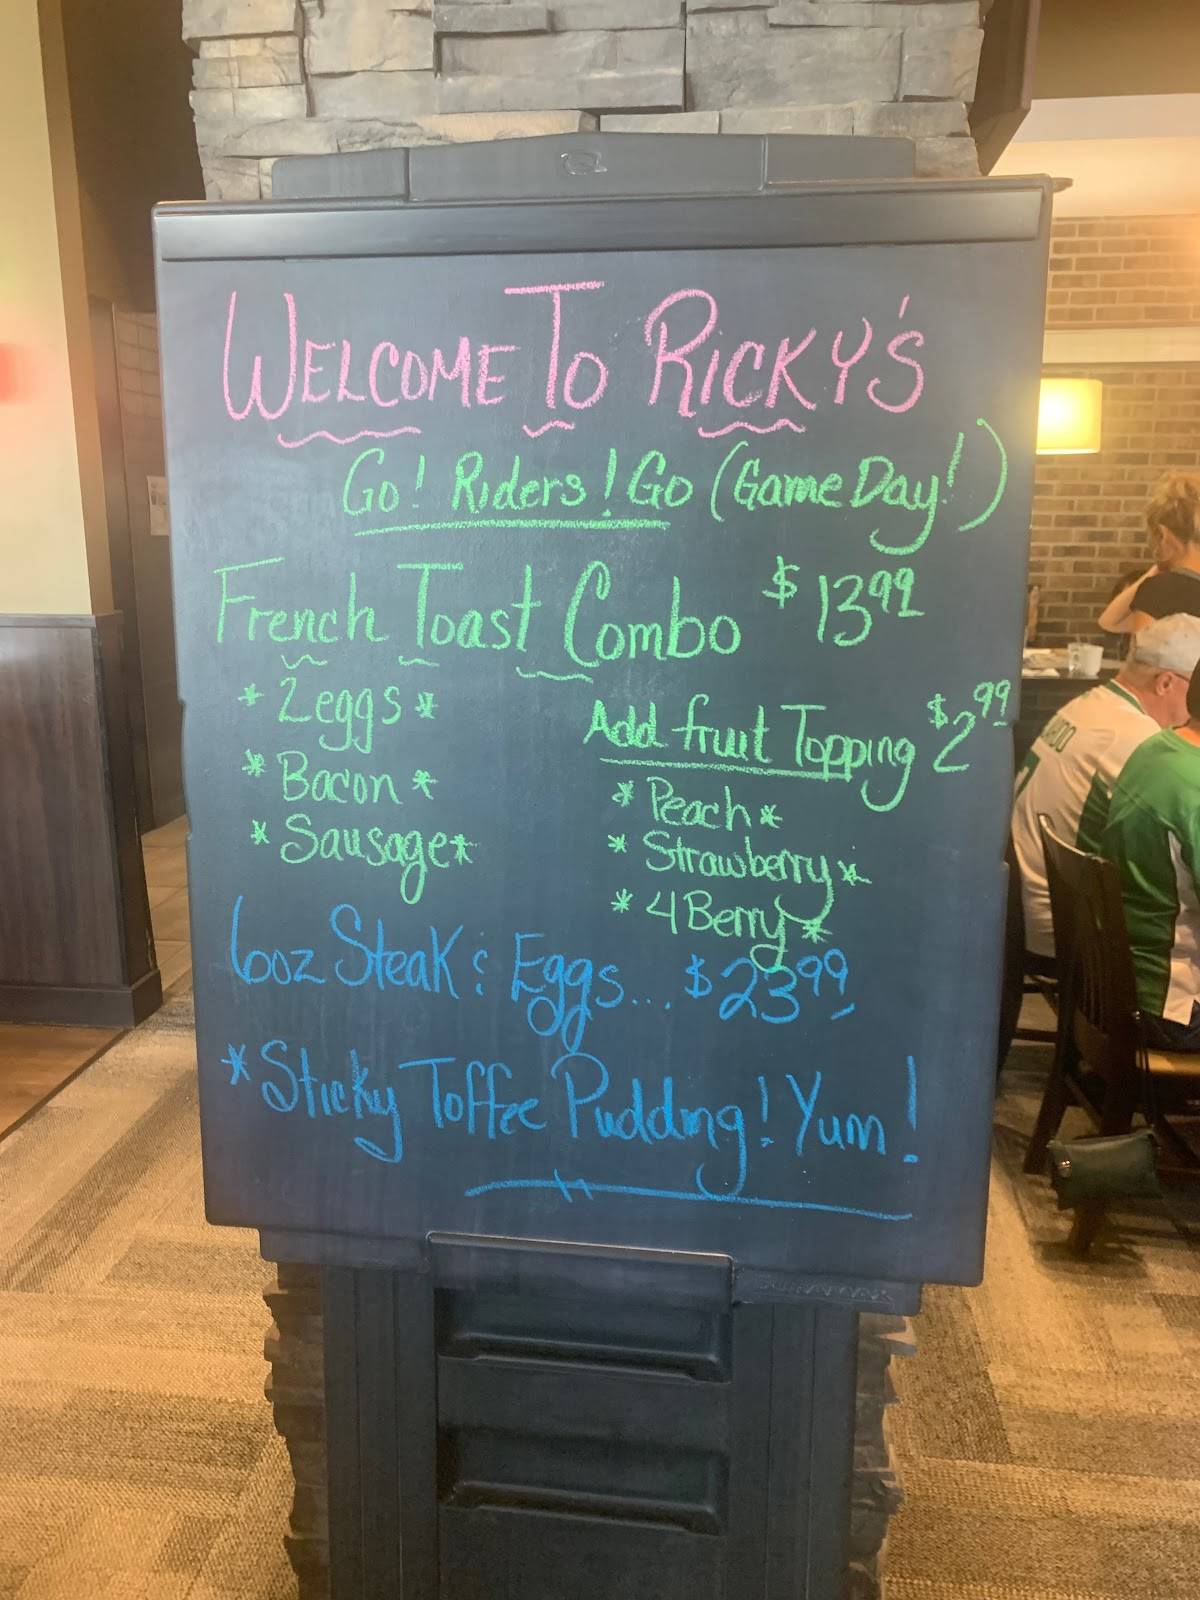 WELCOME TO RICKY'S
Go! Riders! Go (Game Day!)
French Toast Combo $13.99
* 2 eggs *
* Bacon *
* Sausage *
Add fruit Topping $2.99
* Peach *
* Strawberry *
* 4 Berry *
6oz Steak & Eggs... $23.99
* Sticky Toffee Pudding! Yum!